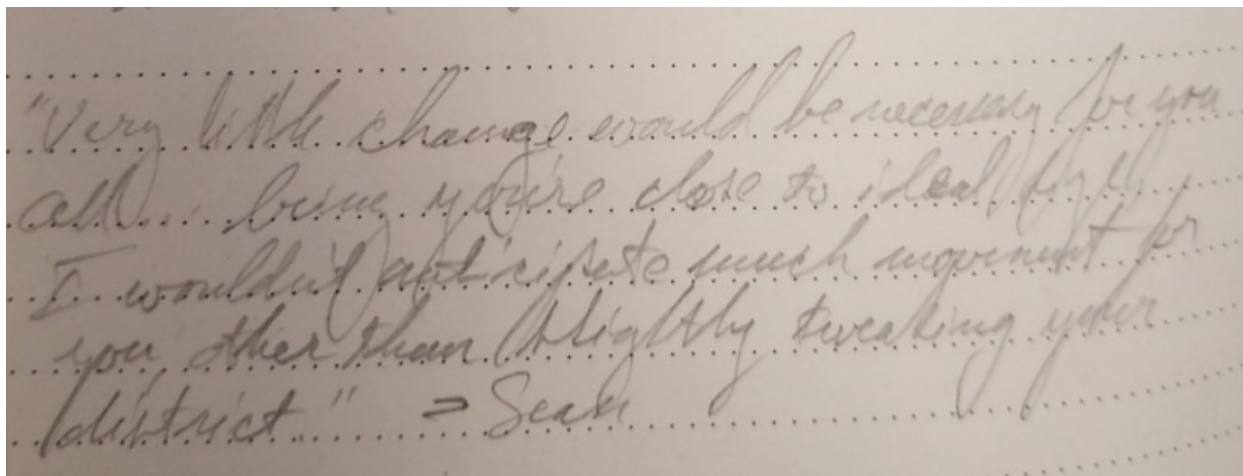 "Very little change would be necessary for you
all... being you're close to ideal
I wouldn't anticipate much movement for
you, other than slightly tweaking your
district" - Sean